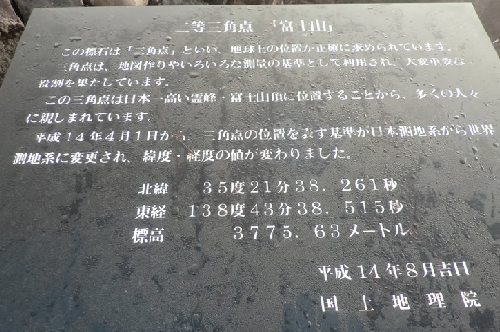 二等三角点 「富士山」
この標石は「三角点」といい、地球上の位置が正確に求められています。
三角点は、地図作りやいろいろな測量の基準として利用され、大変重要な
役割を果たしています。
この三角点は日本一高い霊峰・富士山頂に位置することから、多くの人々
に親しまれています。
平成14年4月1日から、三角点の位置を表す基準が日本測地系から世界
測地系に変更され、緯度・経度の値が変わりました。
北緯 35度21分38．261秒
東経 138度43分38．515秒
標高 3775．63メートル
平成14年8月吉日
国土地理院